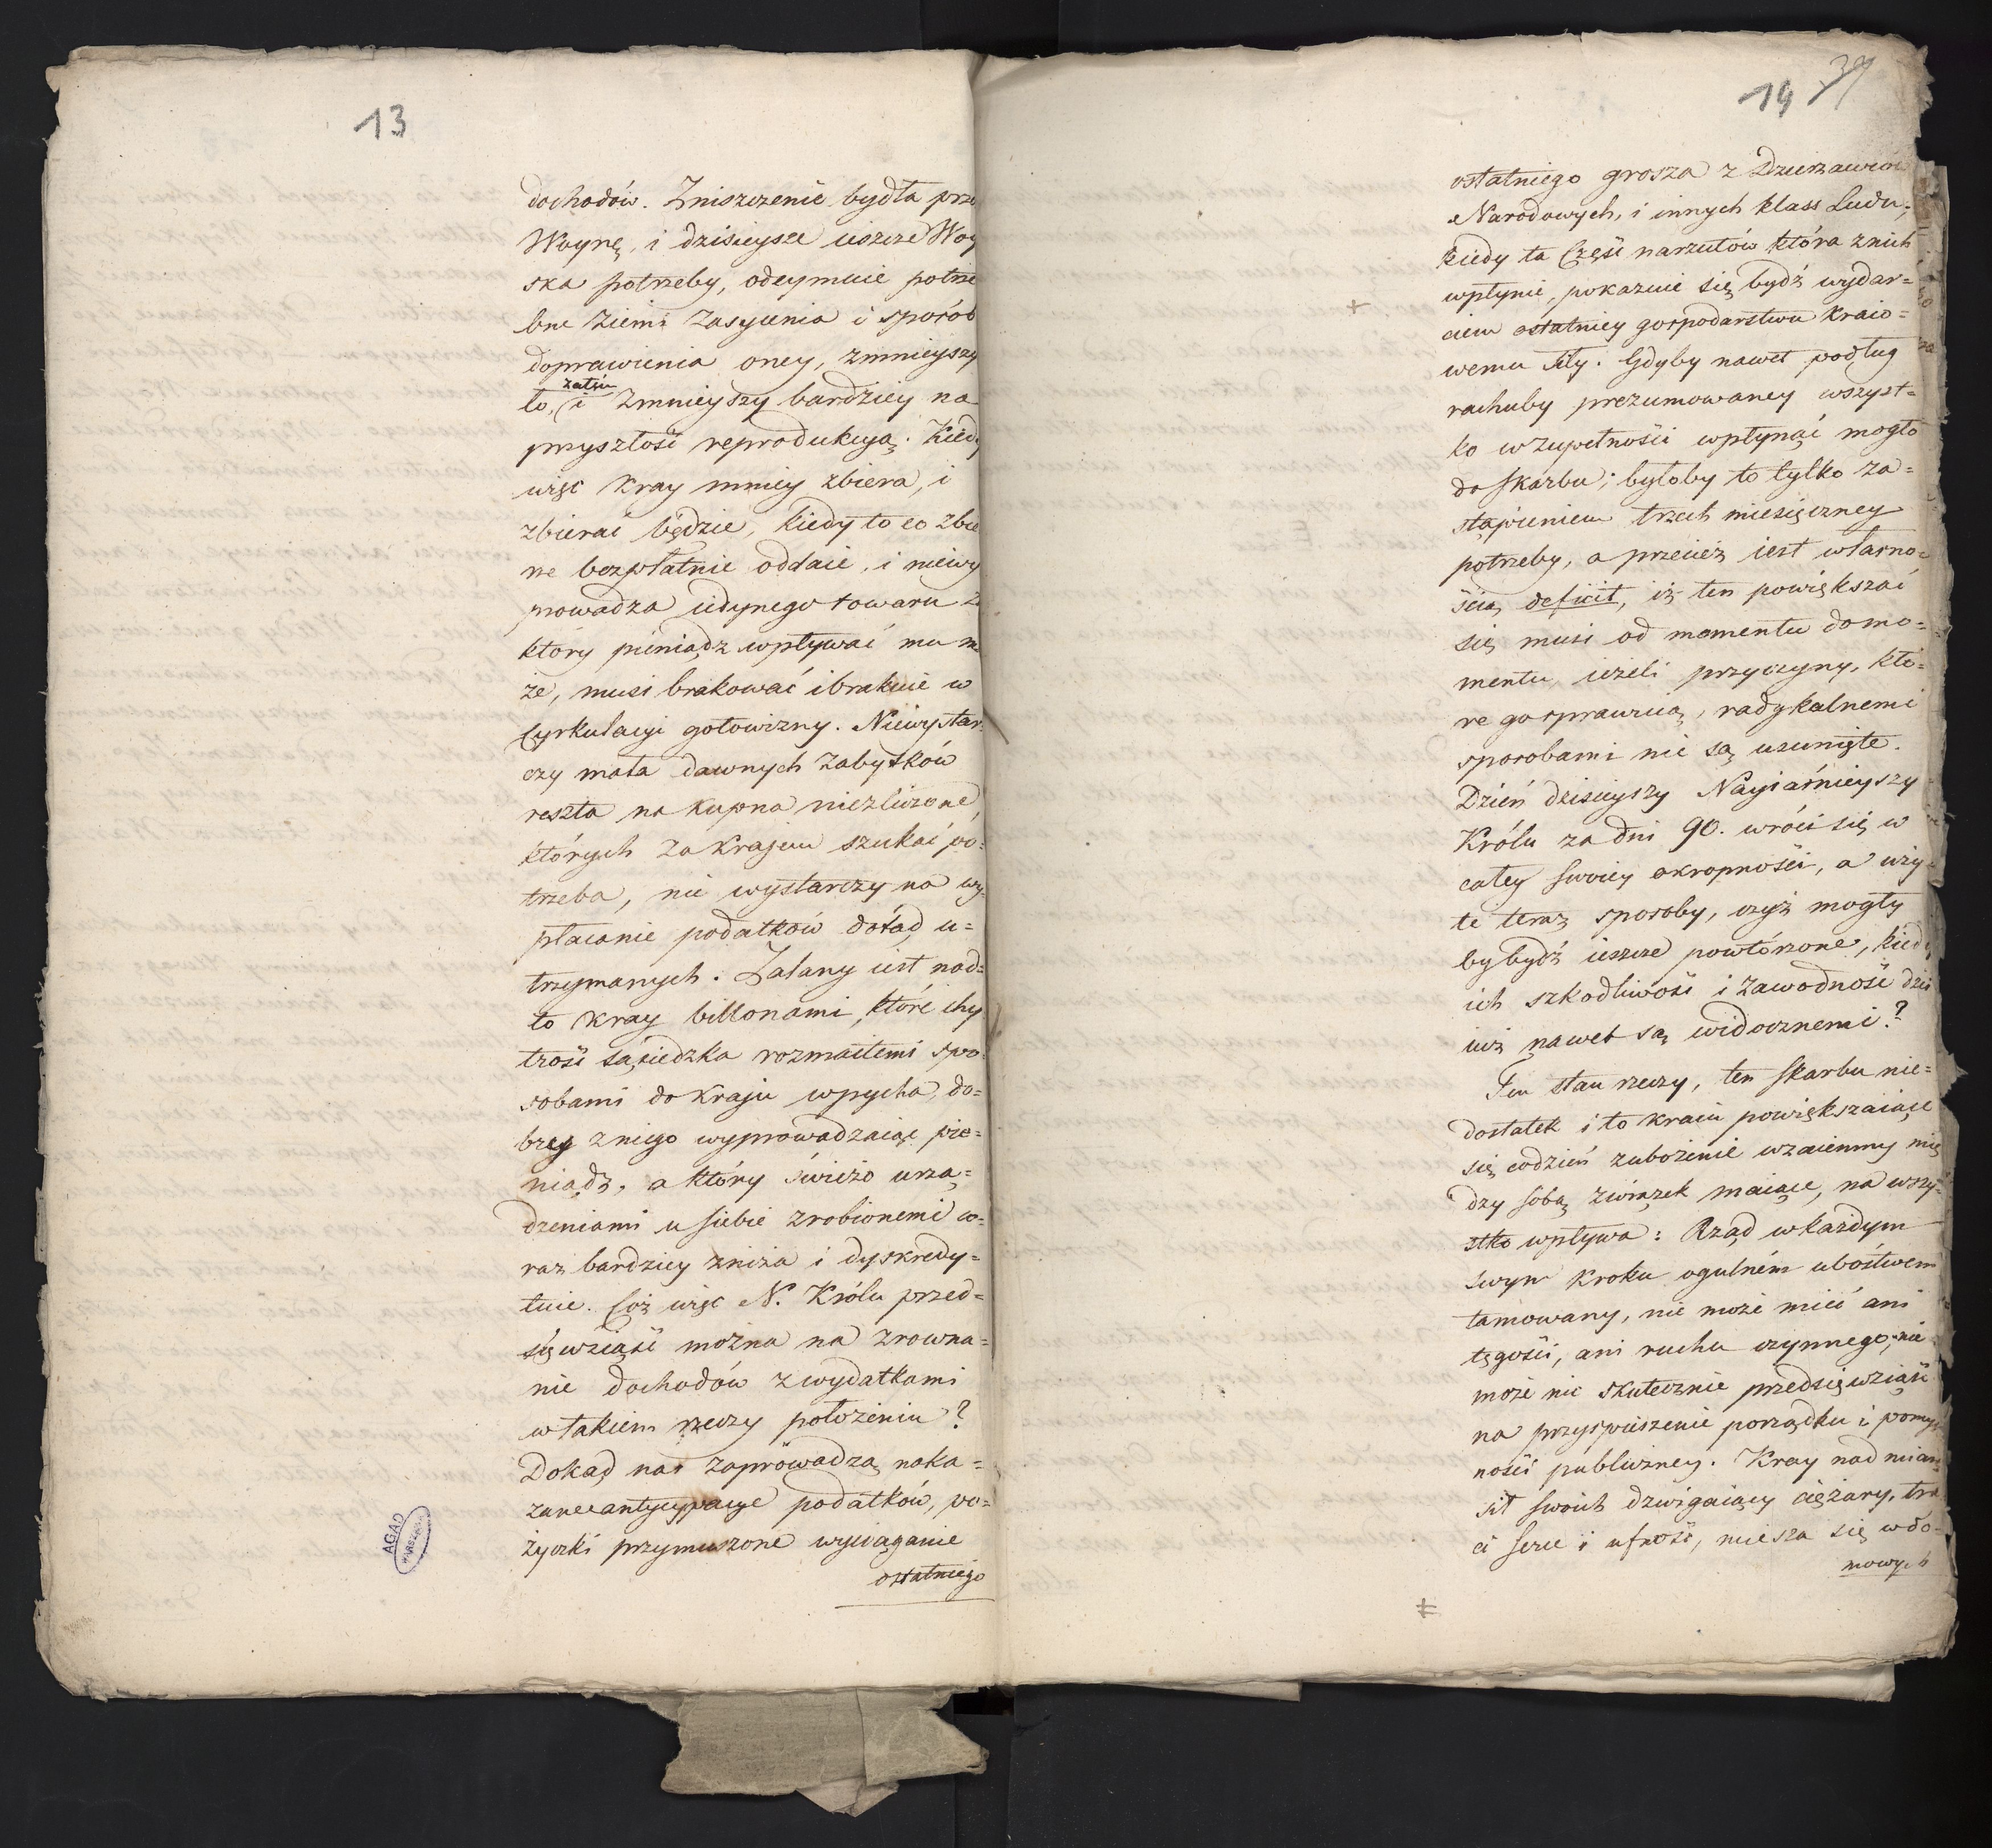 13
dochodów. Zniszczenie bydła prze
Woynę, i dzisieysze ieszcze Woy
ska potrzeby, odeymuie potrze
bne ziemi zasycenia i sposób
doprawienia oney, zmnieyszy
zatém
to, i zmnieyszy bardziey na
przyszłość reprodukcyą. Kiedy
więc Kray mniey zbiera, i
zbierać będzie, kiedy to co zbie
ne bezpłatnie oddaie, i niewy
prowadza iedynego towaru za
który pieniądz wpływać mu mo
że, musi brakować i brakuie w
Cyrkulacyi gotowizny. Niewystar=
czy mała dawnych zabytków
reszta na kupna niezliczone,
których za krajem szukać po=
trzeba, nie wystarczy na wy=
płacanie podatków dotąd u=
trzymanych. Zalany iest nad=
to kray billonami, które chy
trość sąsiedzka rozmaitemi spo=
sobami do kraju wpycha, do=
brey z niego wyprowadzaiąc pie=
niądz, a który świeżo urzą=
dzeniami u siebie zrobionemi co=
raz bardziey zniża i dyskredy=
tuie. Cóż więc N. Królu przed=
sięwziąść można na zrowna=
nie dochodów z wydatkami
w takiem rzeczy położeniu?
Dokąd nas zaprowadzą naka=
zane antycypacye podatków, po=
życzki przymuszone wyciąganie
ostatniego
AGAD
WARSZAWA
14 39
ostatniego grosza z Dzierzawców
Narodowych, i innych klass Ludu;
kiedy ta Część narzutów która z nich
wpłynie, pokazuie się bydź wydar=
ciem ostatniey gospodarstwu kraio=
wemu siły. Gdyby nawet podług
rachuby prezumowaney wszyst=
ko w zupełności wpłynąć mogło
do skarbu; byłoby to tylko za=
stąpieniem trzech miesięczney
potrzeby, a przecież iest własno=
ścią deficit, iż ten powiększać
się musi od momentu do mo=
mentu, ieżeli przyczyny, któ=
re go sprawuią, radykalnemi
sposobami nie są usunięte.
Dzień dzisieyszy Nayiaśnieyszy
Królu za dni 90. wróci się w
całey swoiey okropności, a uży=
te teraz sposoby, czyż mogły
by bydź ieszcze powtórzone, kiedy
ich szkodliwość i zawodność dziś
iuż nawet są widocznemi?
Ten stan rzeczy, ten skarbu nie=
dostatek i to kraiu powiększaiące
się codzień zubożenie wzaiemny mię
dzy sobą związek maiące, na wszy=
stko wpływa: Rząd w każdym
swym kroku ogulném ubóstwem
tamowany, nie może mieć ani
tęgości, ani ruchu czynnego, nie
może nic skutecznie przedsięwziąść
na przyspieszenie porządku i pomyśl
ności publiczney. Kray nad miarę
sił swoich dzwigaiący ciężary, tra
ci serce i ufność, miesza się w do=
mowych